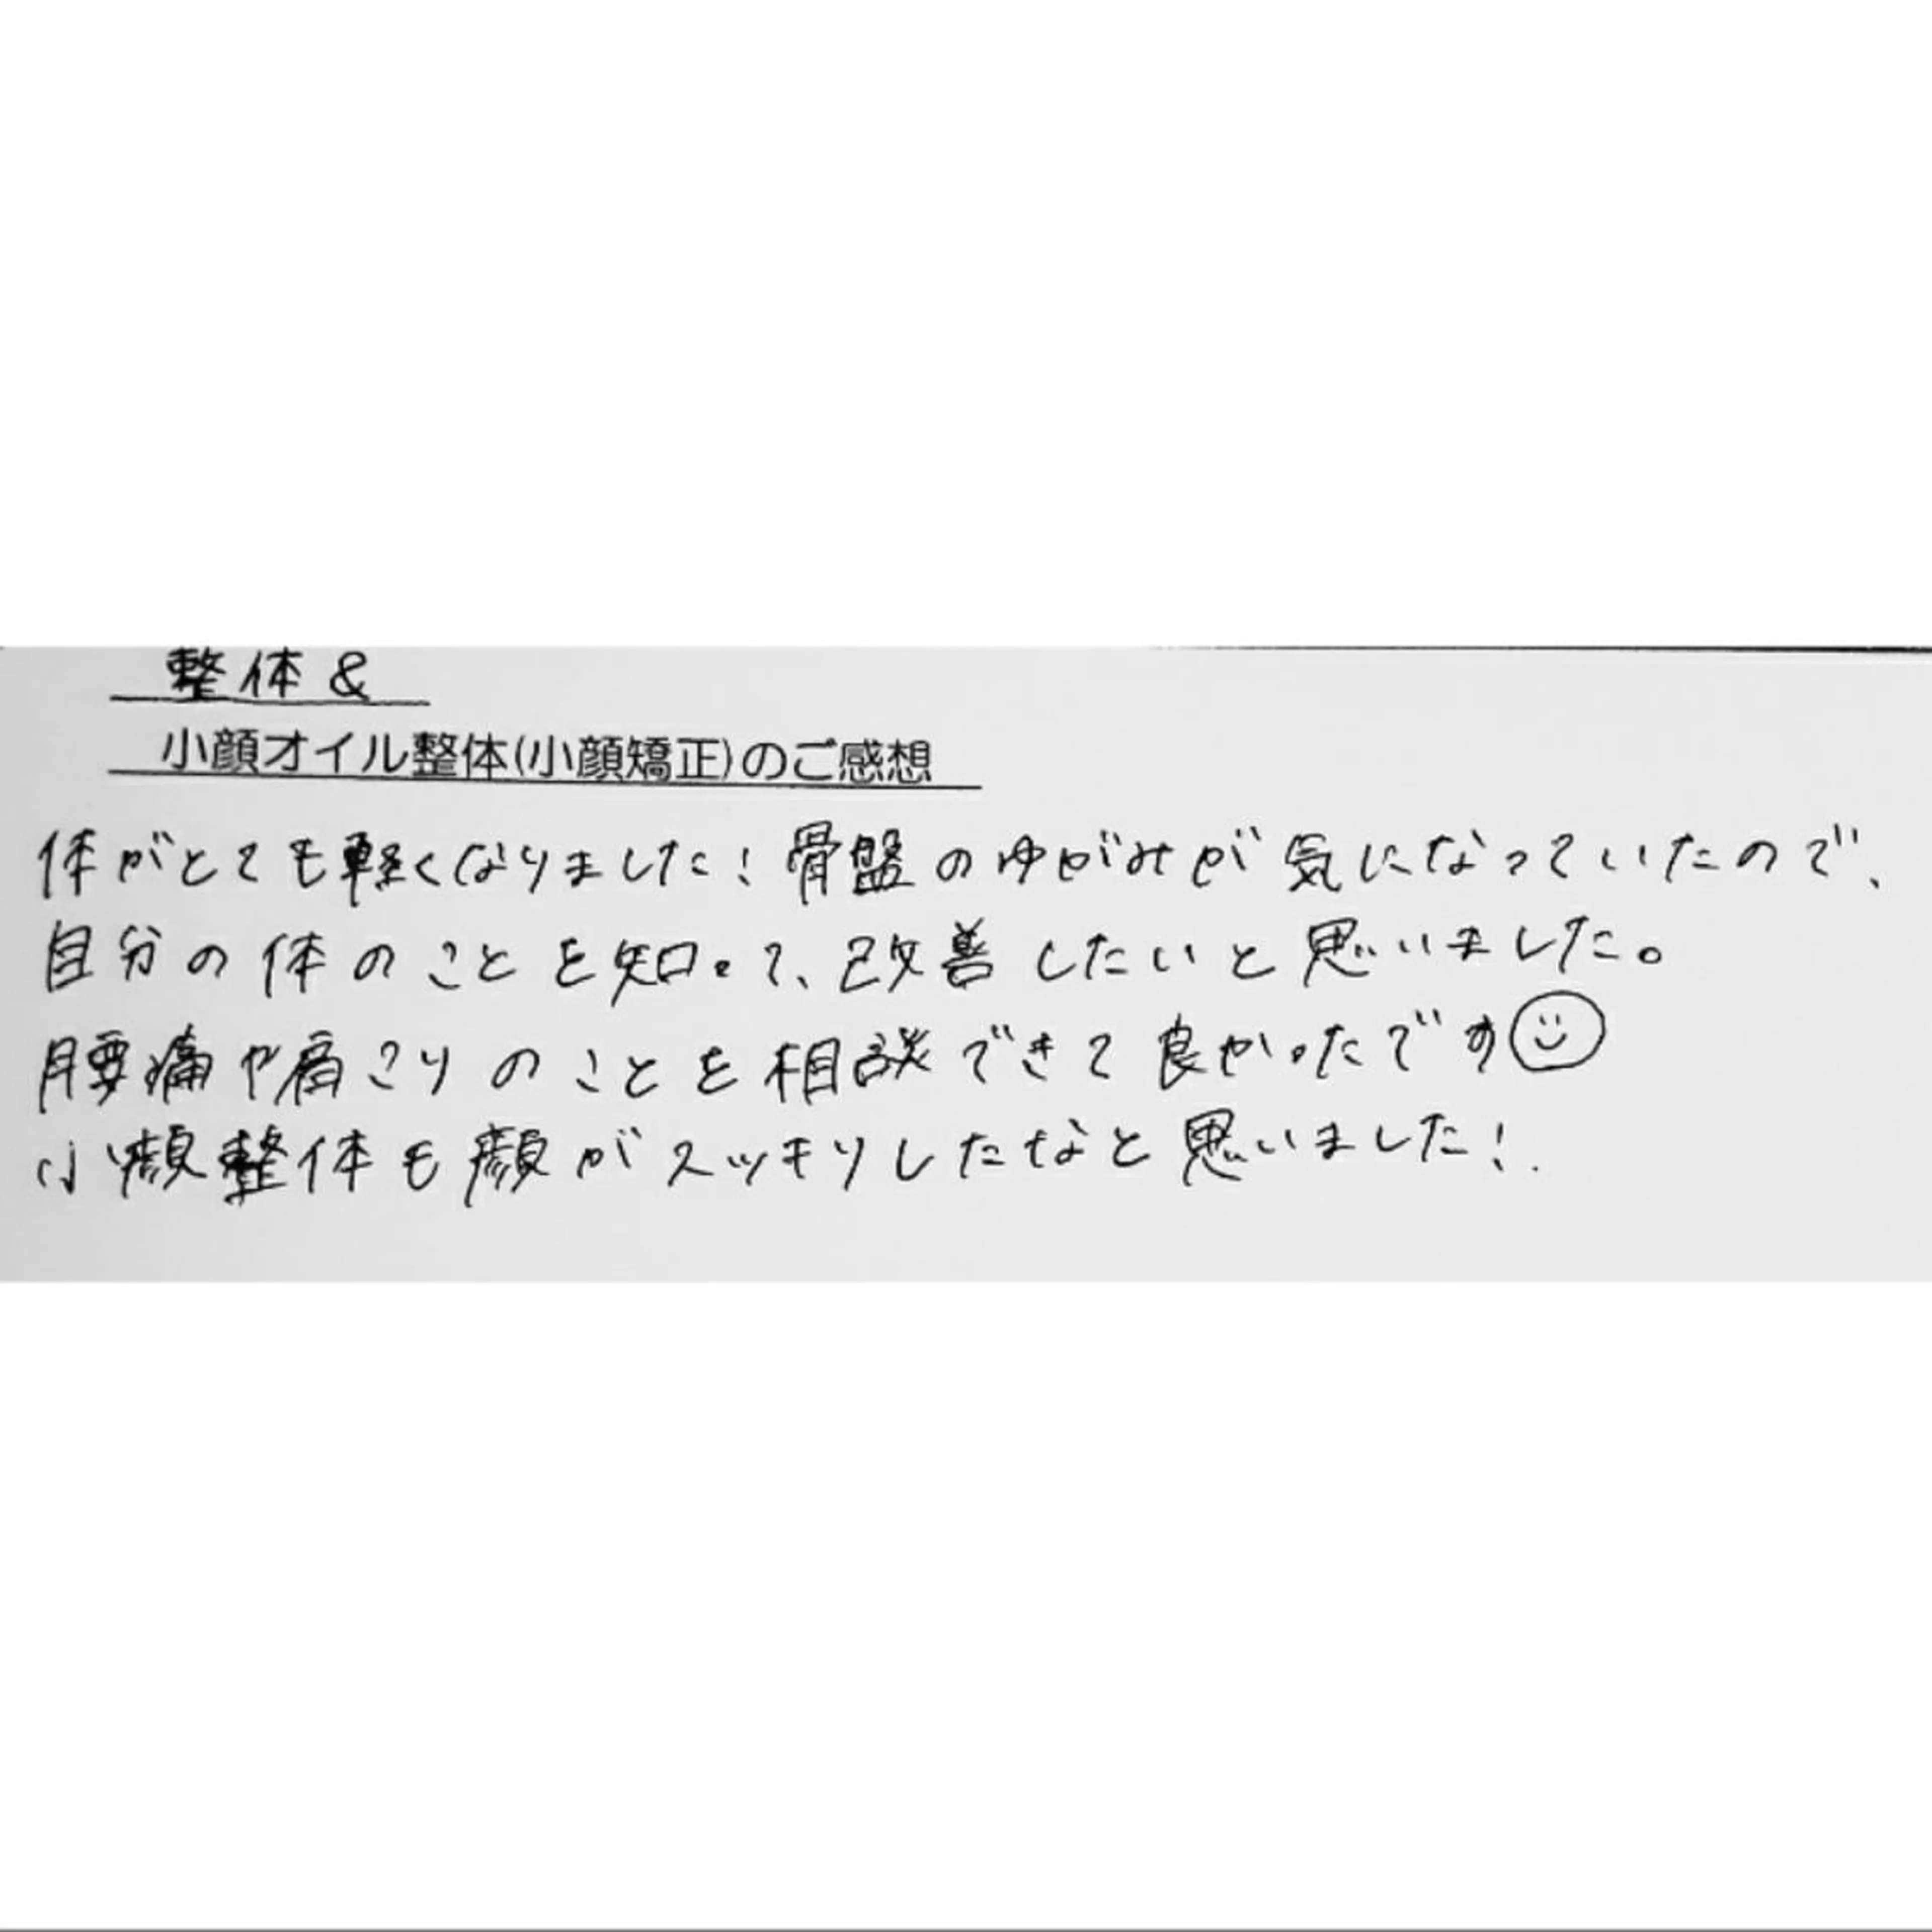 整体&
小顔オイル整体(小顔矯正)のご感想
体がとても軽くなりました!骨盤のゆがみが気になっていたので、
自分の体のことを知って、改善したいと思いました。
腰痛や肩こりのことを相談できて良かったです☺
小顔整体も顔がスッキリしたなと思いました!.